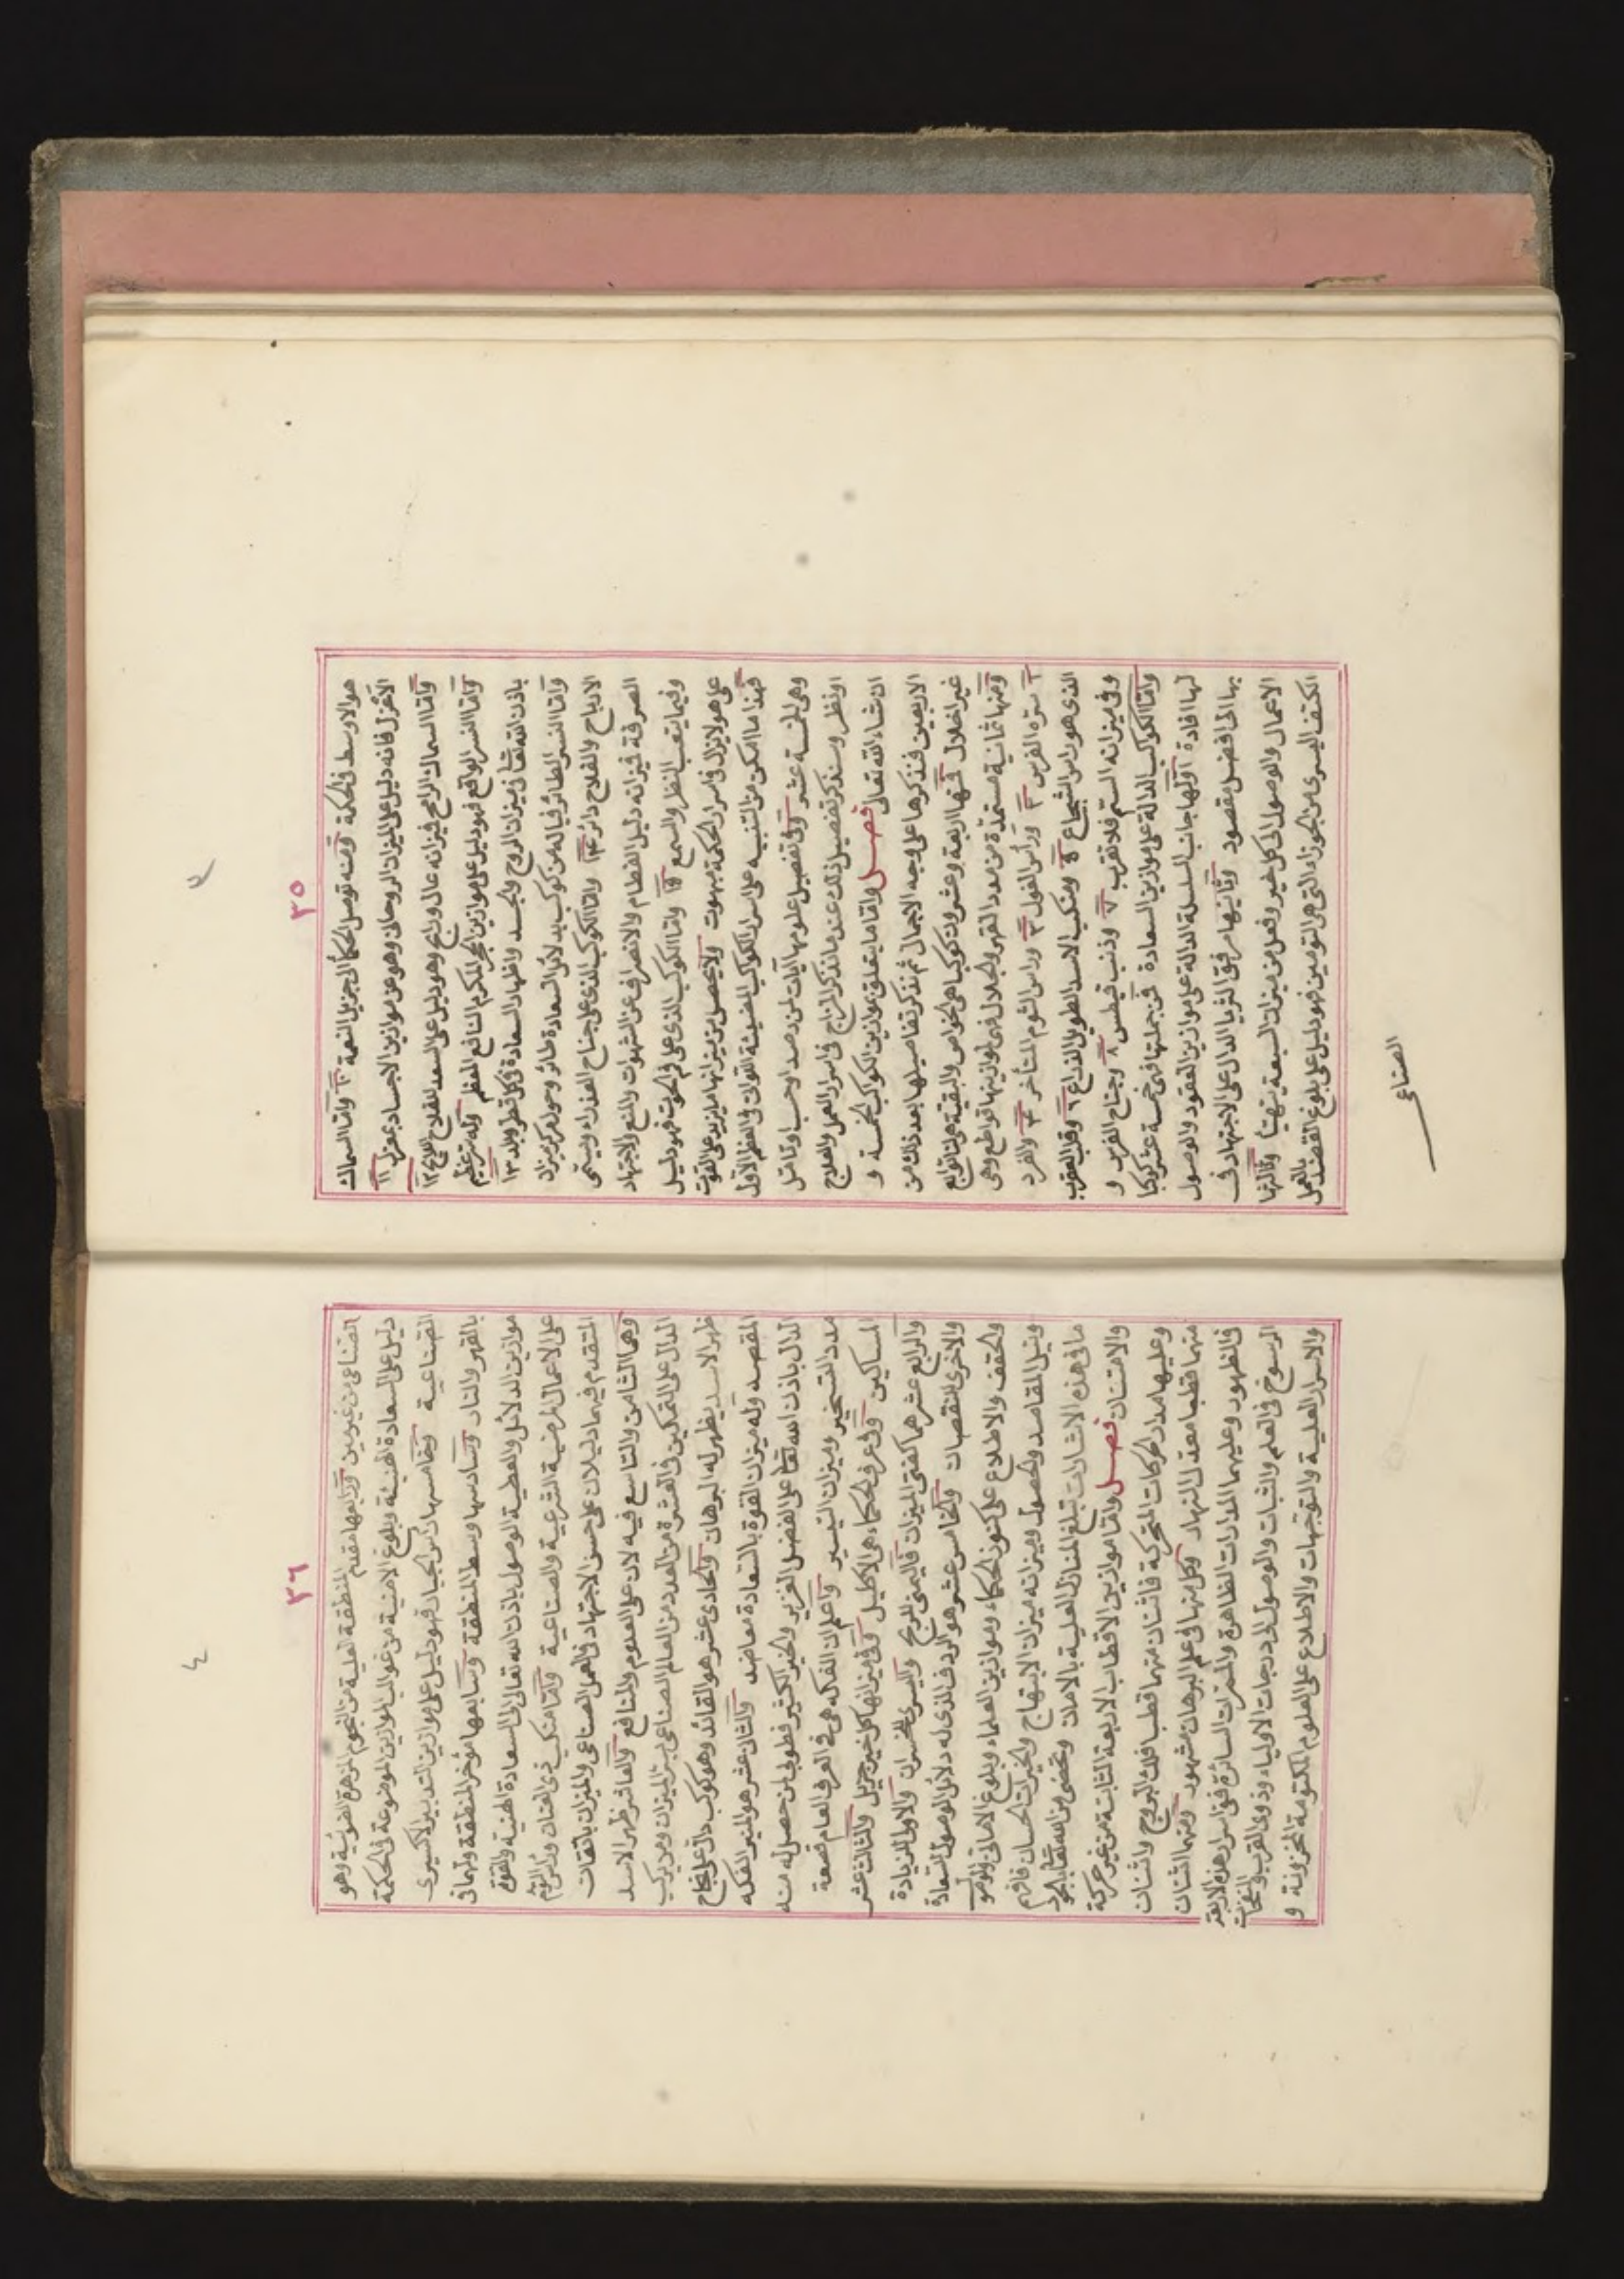 ٣٥
هو الاوسط في الحكمة ومنه توصل الحكما الى جزيل النعمة ١٠ واما السماك
الاعزل فانه دليل على الميزان الروحاني وهو عن موازين الاجساد بمعزل ١١
واما السماك الرامح فيزانه عال ورابح وهو دليل على السعد للفلاح ١٢
واما النسر الواقع فهو دليل على موازين الحجر المكرم النافع المعظم وله تربيع عظيم
باذن الله تعالى في ميزان الروح والجسد واظهار السعادة في كل قطر وبلد ١٣
واما النسر الطائر فياله من كوكب بدلائل السعادة طائر وحول مركز ميزان
الارباح والفلاح دائر ١٤ واما الكوكب الذي على جناح العذراء ويسمى
الصرفة فيزانه دليل الفطام والانصراف عن الشهوات والمنع والاجتهاد
وفيما يتعب النظر والسمع ١٥ واما الكوكب الذي على فم الحوت فهو دليل
على هو لا يزال في اسرار الحكمة مبهوت ولا يحصل من ميزانها ما يزيد على القوت
فهذا ما امكن من التنبيه على اسرار الكواكب المضيئة القوات في العظم الاول
وهي الخمسة عشر وفي تفصيل علومها آيات لمن رصد او حسب او تامل
او نظر وسنذكر تفصيل ذلك عند ما نذكر المزاج في اسرار العمل والعلاج
ان شاء الله تعالى فصل واما ما يتعلق بموازين الكواكب الخمسة و
الاربعين فنذكرها على وجه الاجمال ثم نذكر تفاصيلها بعد ذلك من
غير اخلال فمنها اربعة وعشرون كوكبا هي الخواص والبقية لها توابع
ومنها ثمانية مستمدة من مدد القهر والجلال فهي لموازينها قواطع وهي
١ سرة الفرس ٢ ورأس الغول ٣ وراس التوم المتأخر ٤ والفرد
الذي هو راس الشجاع ٥ ومنكب الاسد الطويل الذراع ٦ وقلب العقرب
وفي ميزانه السم فلا تقرب ٧ وذنب قيطس ٨ وجناح الفرس و
واما الكواكب الدالة على موازين السعادة فمن جملتها فهي خمسة عشر كوكبا
لها افادة اولها جانب السلسلة الدالة على موازين العقود والوصول
بها الى افضل مقصود وثانيها مرفق الثريا الدال على الاجتهاد في
الاعمال والوصول الى كل خير وفعل من ميزان السبعة يتهيأ وثالثها
الكتف اليسرى من الجوزاء التي هي التومين فهو دليل على بلوغ القصد بالعمل
الصناعي
٣٦
الصناعي من غير مين ورابعها مقدم المنطقة العلية من النجوم المزهرة الضوئية وهو
دليل على السعادة الهنيئة وبلوغ الامنية من غوالب الموازين الموضوعة في الحكمة
الصناعية وخامسها رأس الجبار فهو دليل على موازين التدبير الاكسيرى
بالقهر والنار وسادسها وسط المنطقة وسابعها مؤخر المنطقة ولهما في
موازين الدلائل والعطية الوصول باذن الله تعالى الى السعادة الهنية والقوة
على الاعمال المرضية الشرعية والصناعية واما منكب ذي العنان ورأس التوم
المتقدم فهما دليلان على حسن الاجتهاد في العمل الصناعي والميزان باتقان
وهما الثامن والتاسع فيه لان على العلوم والمنافع والعاشر ظهر الاسد
الدال على التمكين في العشرة من العدد من العالم الصناعي بسر الميزان ومن يركب
ظهر الاسد يظهر له البرهان والحادي عشر هو القائد وهو كوكب دال على نجاح
المقصد وله ميزان القوة بالسعادة معاضد والثاني عشر هو المنير الفكه
الدال باذن الله تعالى على الفضل الغزير والخير الكثير فطوبى لمن حصل له منه
مدد التسخير وميزان التيسير واعلم ان الفكه هي في العرف العام قصعة
المساكين وفي عرف الحكماء هي الاكليل وفي ميزانها كل خير جزيل والثالث عشر
والرابع عشر هما كفتي الميزان فاليمنى للربح واليسرى للخسران والاولى للزيادة
والاخرى للنقصان والخامس عشر هو الردف الذي له دلائل الوصول للسعادة
والحقف والاطلاع على كنوز الحكماء وموازين العلماء وبلوغ الاماني والنمو
ونيل المقاصد والحصول وميزانه ميزان الابتهاج والخيرات الحسان فافهم
ما في هذه الاشارات تبلغ المنازل العلية بالامان وتحضى من الله تعالى بالجود
والامتنان فصل واما موازين الاقطاب الاربعة الثابتة من غير حركة
وعليها مدار الحركات المتحركة فاثنان منهما قطبا فلك البروج واثنان
منهما قطبا معدل النهار وكل منها في علم البرهان مشهود ومنهما اثنان
في الظهور وعليهما المدارات الظاهرة والمسرات السائرة ففي اسرار هذه الاربعة
الرسوخ في العلم والثبات والوصول الى درجات الاولياء وذوي القرب والنفحات
والاسرار العلية والتوجهات والاطلاع على العلوم المكتومة المخزونة و